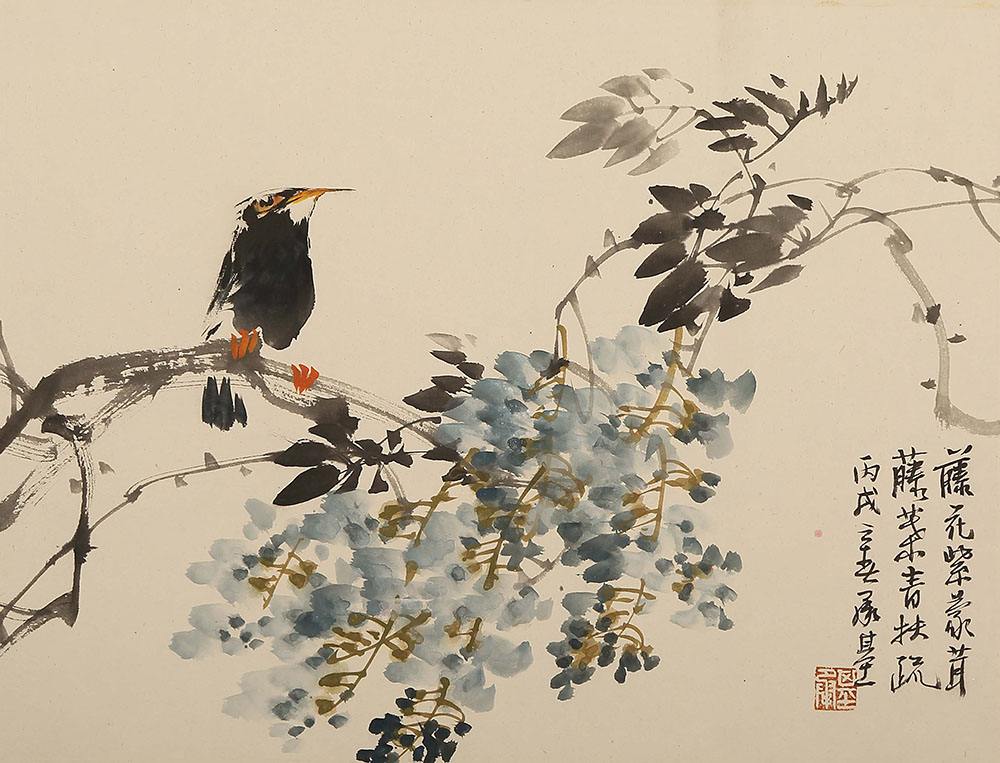 藤花紫蒙茸
藤葉青扶疏
丙戌